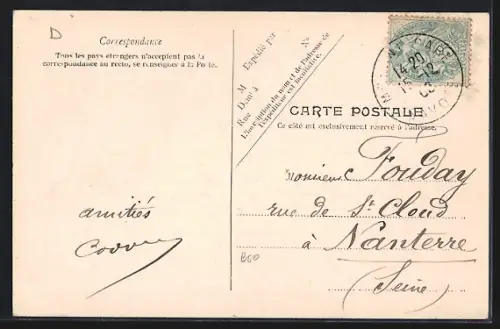 D
Correspondance
Tous les pays étrangers n'acceptent pas la
correspondance au recto, se renseigner à la Poste.
Expédié par
M
N°
Rue
Domt à
L'inscription du nom et de l'adresse de
l'expéditeur est facultative.
14-20
15-12
CARTE POSTALE
Ce côté est exclusivement réservé à l'adresse.
Monsieur Fouday
rue de St Cloud
à Nanterre
(Seine)
amitiés